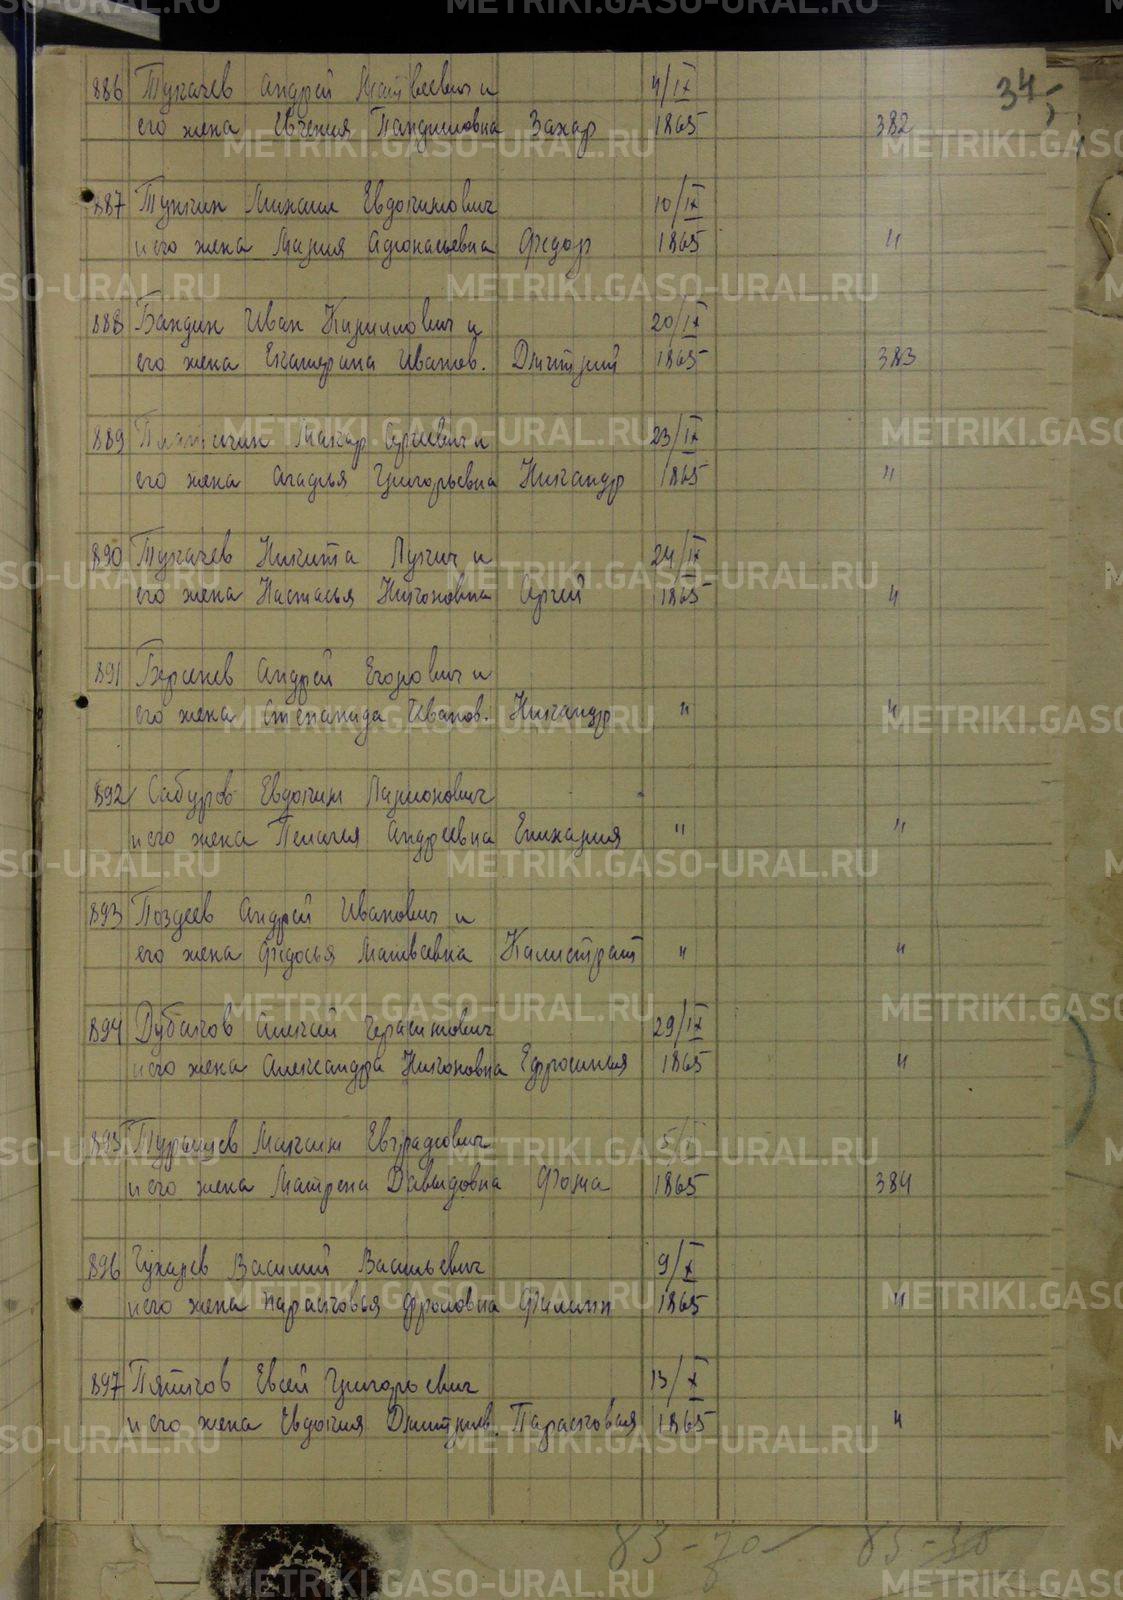 34
886 Тукачев Андрей Матвеевич и 4/IX
его жена Евгения Панфиловна Захар 1865 382
887 Тункин Михаил Евдокимович 10/IX
и его жена Мария Афонасьевна Федор 1865 "
888 Бандин Иван Кириллович и 20/IX
его жена Екатерина Иванов. Дмитрий 1865 383
889 Макар Сергеевич и 23/IX
его жена Агафья Григорьевна Никандр 1865 "
890 Тукачев Никита Лукич и 24/IX
его жена Настасья Никоновна Сергей 1865 "
891 Берсенев Андрей Егорович и
его жена Степанида Иванов. Никандр " "
892 Сабуров Евдоким Ларионович
и его жена Пелагия Андреевна Епихария " "
893 Поздеев Андрей Иванович и
его жена Федосья Матвеевна Калистрат " "
894 Дубасов Алексей Герасимович 29/IX
и его жена Александра Никоновна Ефросинья 1865 "
895 Максим Евграфович
и его жена Матрена Давыдовна Фома 1865 384
896 Чухарев Василий Васильевич 9/X
и его жена Парасковья Фроловна Филипп 1865 "
897 Пятков Евсей Григорьевич 13/X
и его жена Евдокия Дмитриев. Парасковья 1865 "
METRIKI.GASO-URAL.RU